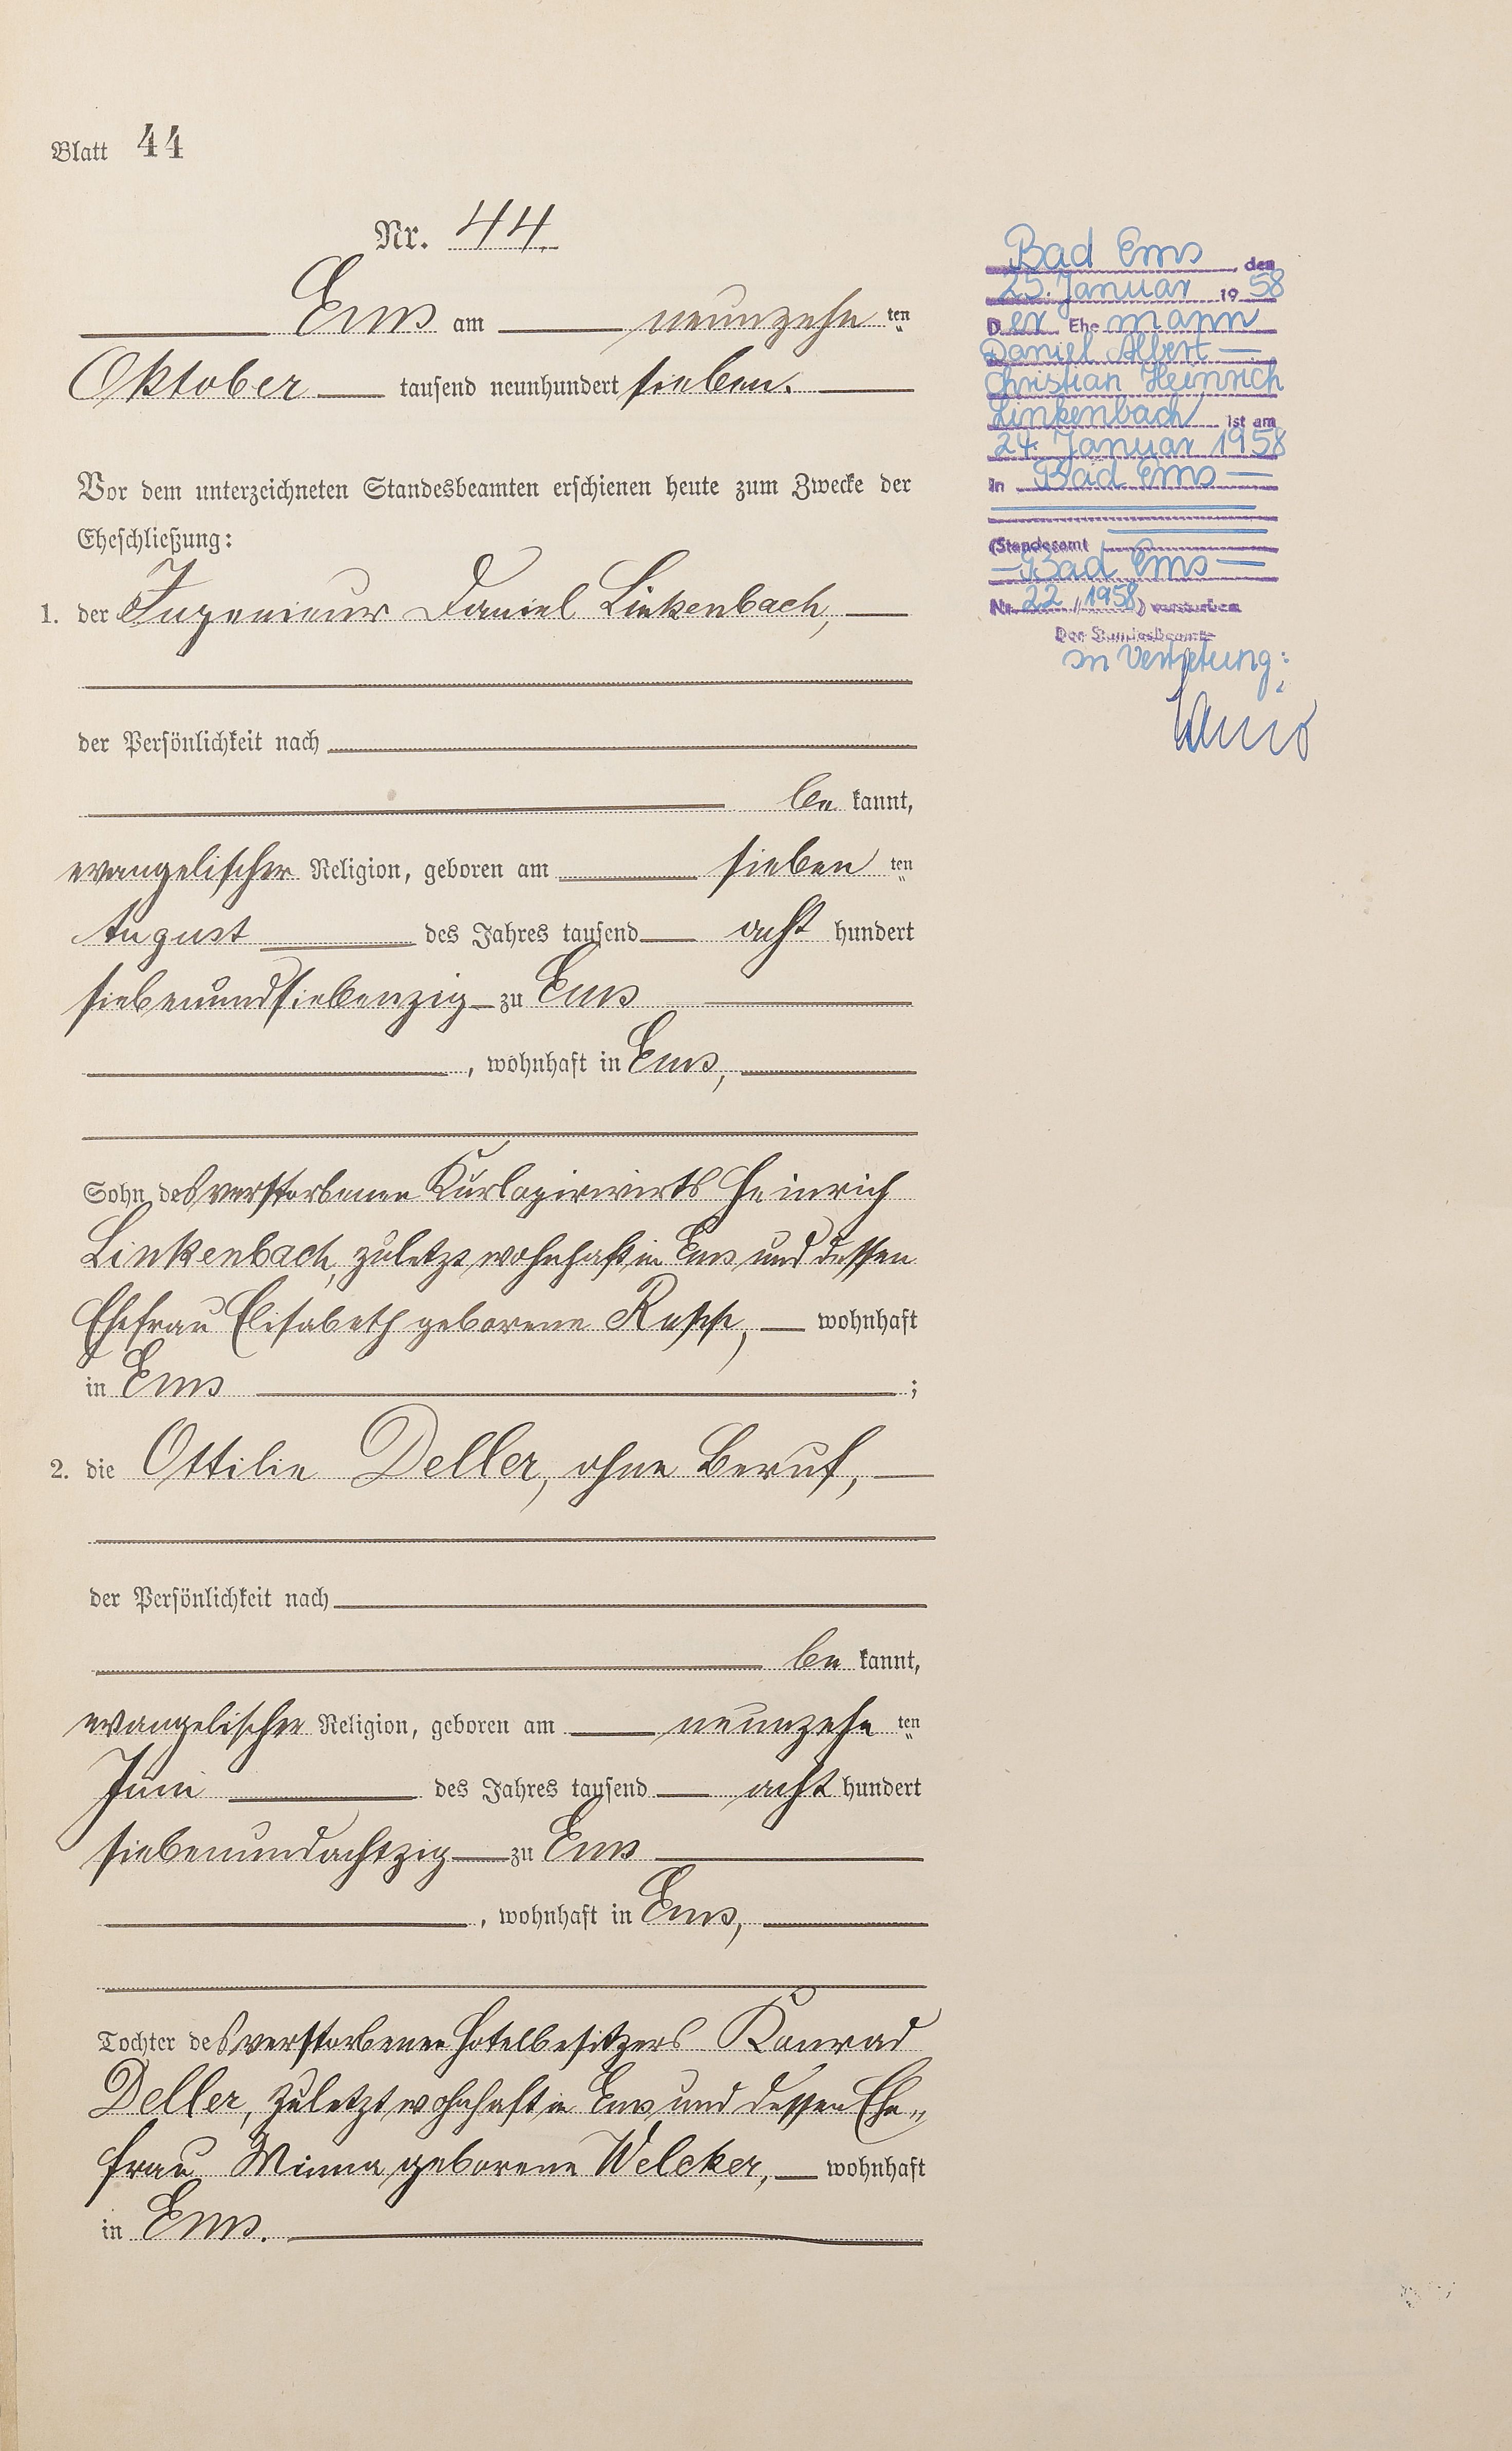 Blatt 44
Nr. 44.
Ems am neunzehnten
Oktober tausend neunhundert sieben.
Vor dem unterzeichneten Standesbeamten erschienen heute zum Zwecke der
Eheschließung:
1. der Ingenieur Daniel Linkenbach,
der Persönlichkeit nach
be kannt,
evangelischer Religion, geboren am sieben ten
August des Jahres tausend acht hundert
siebenundsiebenzig zu Ems
, wohnhaft in Ems,
Sohn des verstorbenen Kurlogirwirts Heinrich
Linkenbach, zuletzt wohnhaft in Ems und dessen
Ehefrau Elisabeth geborene Rupp, wohnhaft
in Ems ;
2. die Ottilie Deller, ohne Beruf,
der Persönlichkeit nach
be kannt,
evangelischer Religion, geboren am neunzehn ten
Juni des Jahres tausend acht hundert
siebenundachtzig zu Ems
, wohnhaft in Ems,
Tochter des verstorbenen Hotelbesitzers Konrad
Deller, zuletzt wohnhaft in Ems und dessen Ehe„
frau Minna geborene Welcker, wohnhaft
in Ems.
Bad Ems, den
25. Januar 19 58
Der Ehe mann
Daniel Albert
Christian Heinrich
Linkenbach ist am
24. Januar 1958
in Bad Ems
(Standesamt
Bad Ems
Nr. 22 / 1958) verstorben
Der Standesbeamte
In Vertretung: